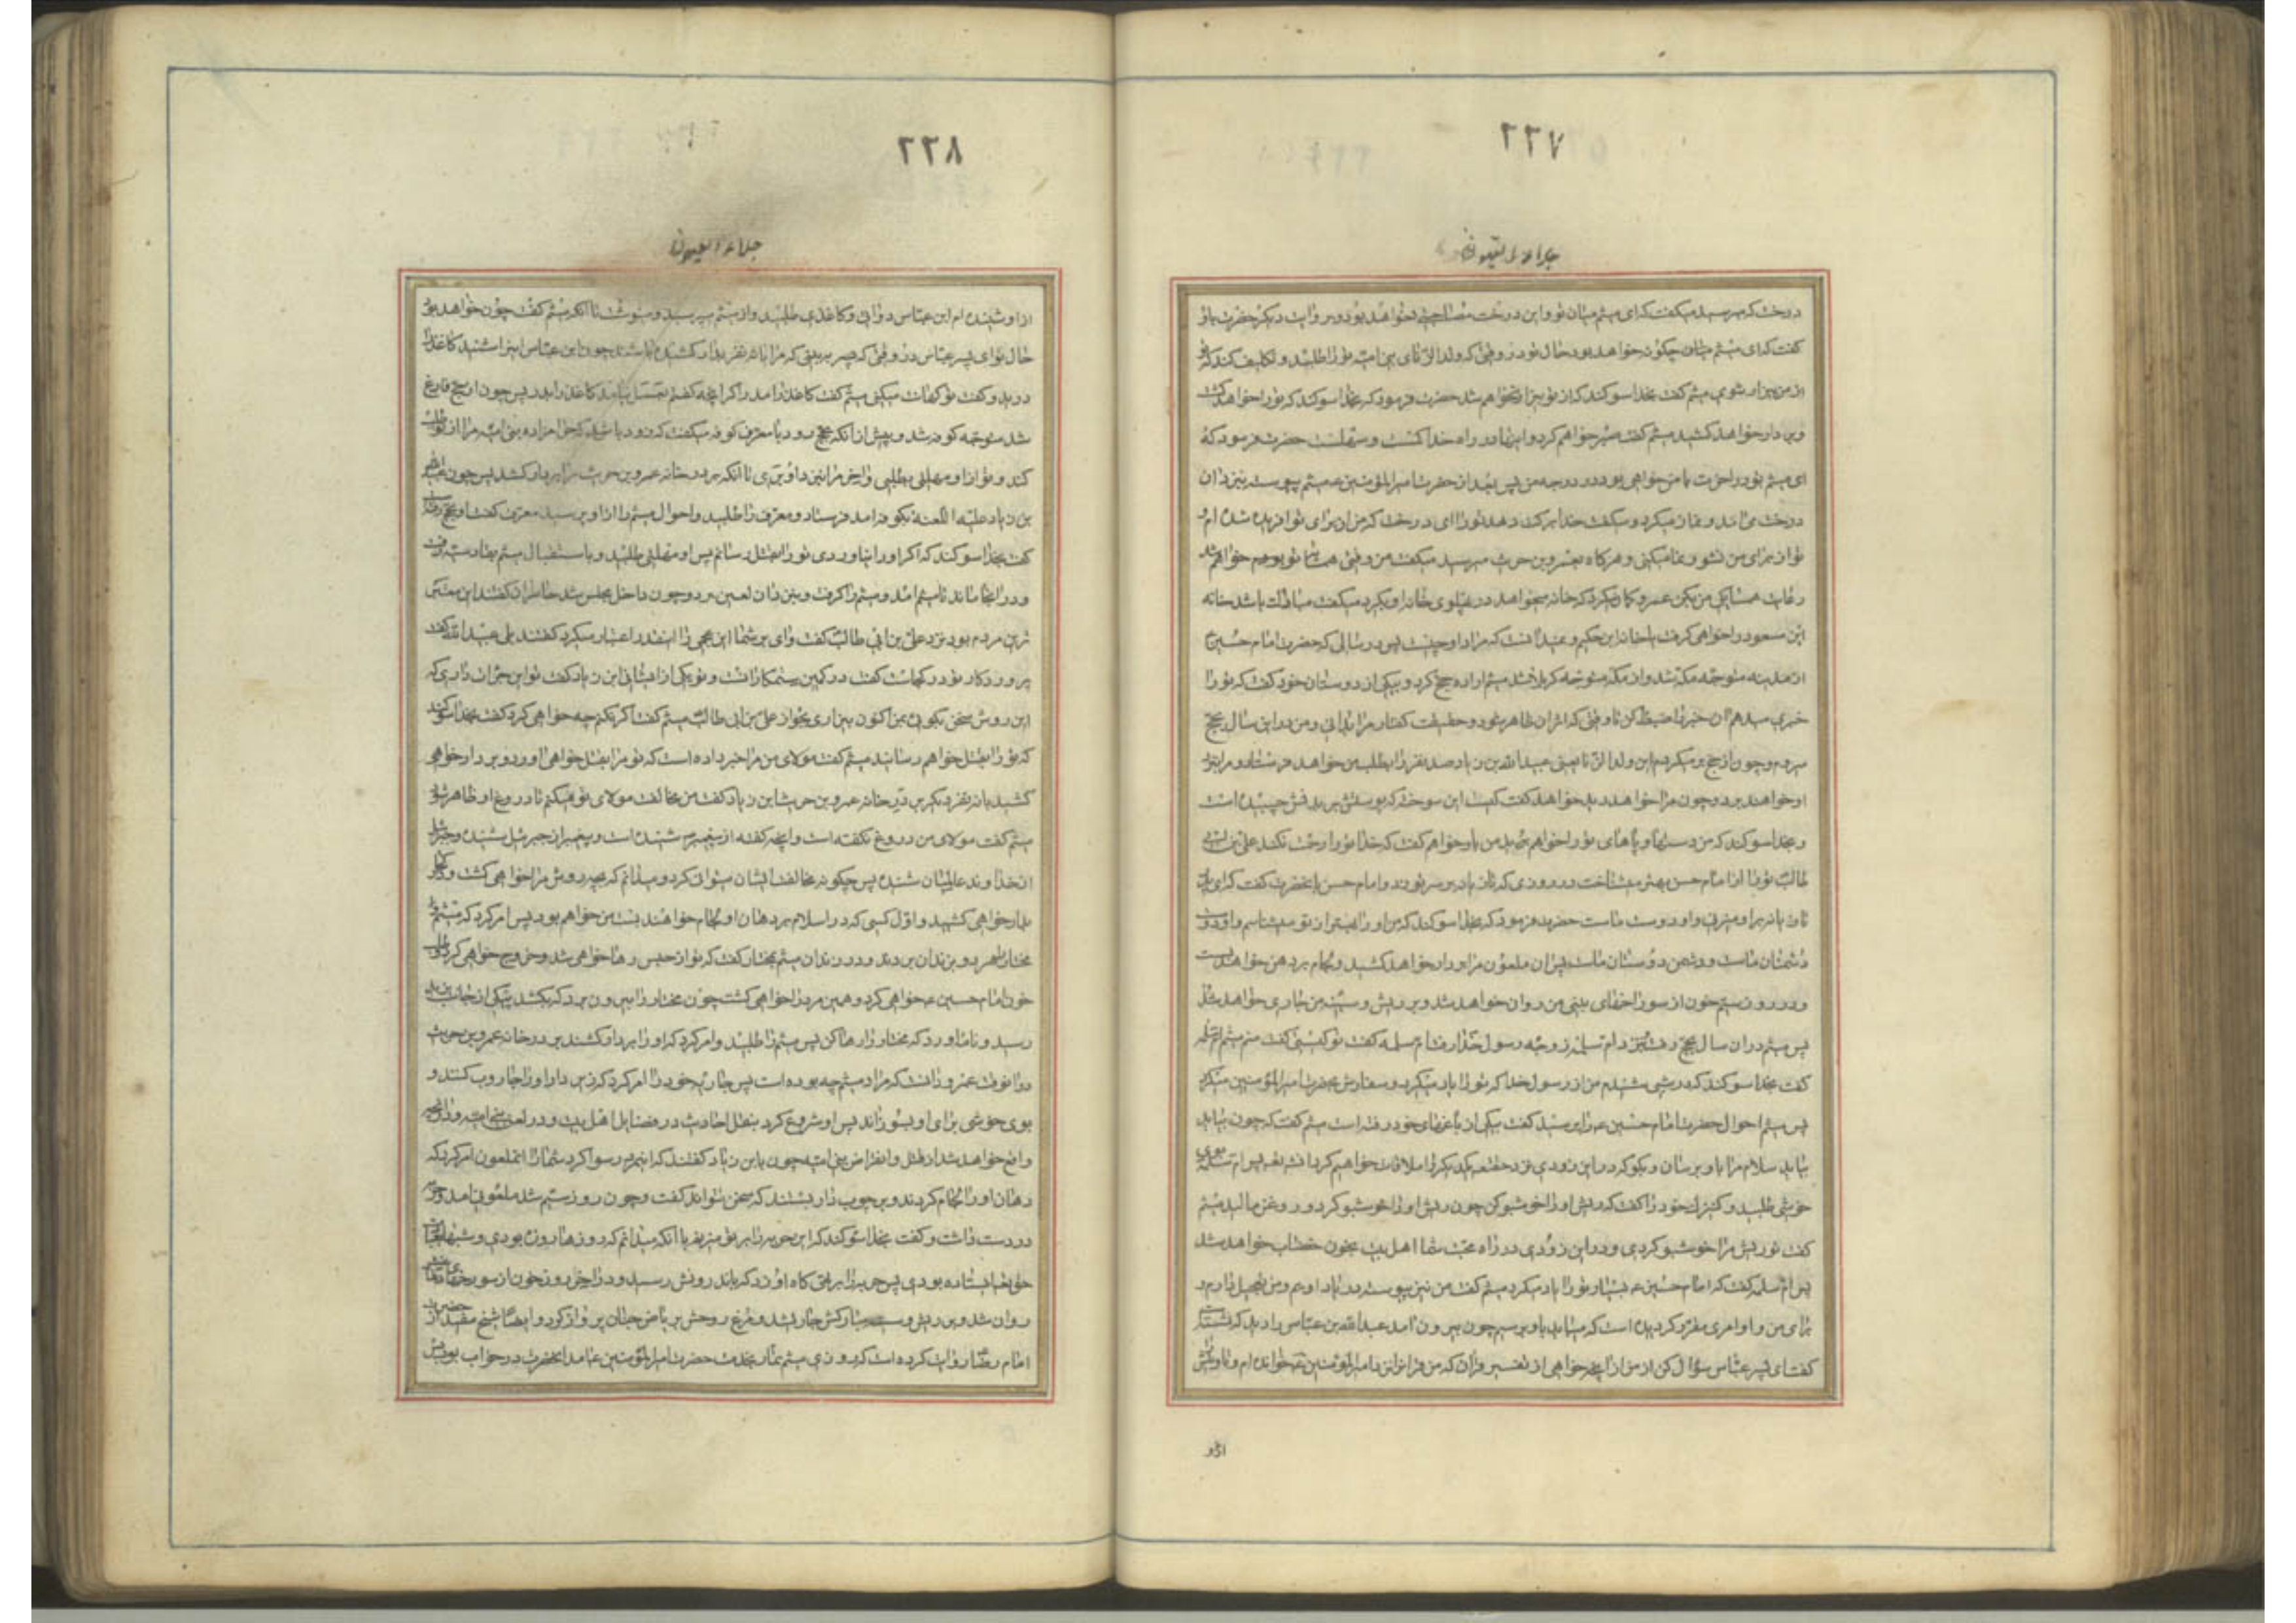 ٢٢٧
جلاء العیون
درخت که میرسید میکفت که ای میثم میان تو و این درخت مصاحبتی خواهد بود و بروایت دیکر حضرت باو
کفت که ای میثم چکونه خواهد بود حال تو در وقتی که ولد الزنای بنی امیه تو را طلبد و تکلیف کند که
از من بیزار شوی میثم کفت بخدا سوکند که از تو بیزار نخواهم شد حضرت فرمود که بخدا سوکند که تو را خواهد کشت
و بر دار خواهد کشید میثم کفت صبر خواهم کرد و اینها در راه خدا کم است و سهلست حضرت فرمود که
ای میثم تو در اخرت با من خواهی بود در درجه من پس بعد از حضرت امیر المؤمنین ع میثم پیوسته بنزد ان
درخت می امد و نماز میکرد و میکفت خدا برکت دهد تو را ای درخت که من از برای تو افریده شده ام و
تو از برای من نشو و نما میکنی و هرکاه بعمرو بن حریث میرسید میکفت من وقتی همسایه تو خواهم شد
رعایت همسایکی من بکن عمرو کمان میکرد که خانه میخواهد در پهلوی خانه او بکیرد میکفت مبارک باشد خانه
ابن مسعود را خواهی کرفت یا خانه ابن حکیم و نمیدانست که مراد او چیست پس در سالی که حضرت امام حسین ع
از مدینه متوجه مکه شد و از مکه متوجه کربلا شد میثم اراده حج کرد و بیکی از دوستان خود کفت که تو را
خبری میدهم ان خبر را ضبط کن تا وقتی که اثر ان ظاهر شود و حقیقت کفتار مرا بدانی و من در این سال بحج
میروم و چون از حج برمیکردم این ولد الزنا یعنی عبید الله بن زیاد صد نفر را بطلب من خواهد فرستاد و مرا بنزد
او خواهند برد و چون مرا خواهد دید خواهد کفت کیست این سوخته که پوستش بر بدنش چسبیده است
و بخدا سوکند که من دستها و پاهای تو را خواهم برید من باو خواهم کفت که خدا تو را رحمت نکند علی بن ابی
طالب تو را از امام حسن بهتر میشناخت در روزی که تازیانه بر سر تو زد و امام حسن بانحضرت کفت که ای پدر
تازیانه بر او میزنی و او دوست ماست حضرت فرمود که بخدا سوکند که من او را بهتر از تو میشناسم و او دوست
دشمنان ماست و دشمن دوستان ماست پس ان ملعون مرا بر دار خواهد کشید و لجام بر دهن من خواهد بست
و در روز سیم خون از سوراخهای بینی من روان خواهد شد و بر ریش و سینه من جاری خواهد شد
پس میثم در ان سال بحج رفت بنزد ام سلمه زوجه رسول خدا رفت ام سلمه کفت تو کیستی کفت منم میثم ام سلمه
کفت بخدا سوکند که در شبی شنیدم من از رسول خدا که تو را یاد میکرد و سفارش بحضرت امیر المؤمنین میکرد
پس میثم احوال حضرت امام حسین ع را پرسید کفت بیکی از باغهای خود رفته است میثم کفت که چون بیاید
سلام مرا باو برسان و بکو که در این زودی نزد حقتعالی یکدیکر را ملاقات خواهیم کرد انشاءالله پس ام سلمه بوی
خوشی طلبید و کنیزک خود را کفت که ریش او را خوشبو کن چون ریش او را خوشبو کرد و روغن مالید میثم
کفت تو ریش مرا خوشبو کردی و در این زودی در راه محبت شما اهل بیت بخون خضاب خواهد شد
پس ام سلمه کفت که امام حسین ع بسیار تو را یاد میکرد میثم کفت من نیز پیوسته در یاد اویم و من تعجیل دارم و
برای من و او امری مقرر کردیده است که میباید باو برسیم چون بیرون امد عبد الله بن عباس را دید که نشسته است
کفت ای پسر عباس سؤال کن از من از انچه خواهی از تفسیر قران که من قران را نزد امیر المؤمنین ع خوانده ام و تاویلش
ازاو
٢٢٨
جلاء العیون
از او شنیده ام ابن عباس دواتی و کاغذی طلبید و از میثم میپرسید و مینوشت تا انکه میثم کفت چون خواهد بود
حال تو ای پسر عباس در وقتی که ببینی که مرا با نه نفر بدار کشیده باشند چون ابن عباس این را شنید کاغذ را
درید و کفت تو کهانت میکنی میثم کفت کاغذ را مدر اکر انچه کفتم بعمل نیاید کاغذ را بدر پس چون از حج فارغ
شد متوجه کوفه شد و پیش از انکه بحج رود با معرف کوفه میکفت که زود باشد که حرامزاده بنی امیه مرا از تو طلب
کند و تو از او مهلتی بطلبی و اخر مرا بنزد او بری تا انکه بر در خانه عمرو بن حریث مرا بر دار کشد پس چون عبید الله
بن زیاد علیه اللعنه بکوفه امد فرستاد و معرف را طلبید و احوال میثم را از او پرسید معرف کفت او بحج رفته
کفت بخدا سوکند که اکر او را نیاوردی تو را بقتل رسانم پس او مهلتی طلبید و باستقبال میثم بقادسیه رفت
و در انجا ماند تا میثم امد و میثم را کرفت و بنزد ان لعین برد و چون داخل مجلس شد حاضران کفتند این مقرب
ترین مردم بود نزد علی بن ابی طالب کفت وای بر شما این عجمی را اینقدر اعتبار میکرد کفتند بلی عبید الله کفت
پرورد کار تو در کجاست کفت در کمین ستمکارانست و تو یکی از ایشانی ابن زیاد کفت تو این جرات داری که
این روش سخن بکویی اکنون بیزاری بجو از علی بن ابی طالب میثم کفت اکر نکنم چه خواهی کرد کفت بخدا سوکند
که تو را بقتل خواهم رسانید میثم کفت مولای من مرا خبر داده است که تو مرا بقتل خواهی اورد و بر دار خواهی
کشید با نه نفر دیکر بر در خانه عمرو بن حریث ابن زیاد کفت من مخالفت مولای تو میکنم تا دروغ او ظاهر شود
میثم کفت مولای من دروغ نکفته است و انچه کفته از پیغمبر شنیده است و پیغمبر از جبرئیل شنیده و جبرئیل
از خداوند عالمیان شنیده پس چکونه مخالفت ایشان میتوان کرد و میدانم که بچه روش مرا خواهی کشت و در کجا
بدار خواهی کشید و اول کسی که در اسلام بر دهان او لجام خواهند بست من خواهم بود پس امر کرد که میثم و
مختار را هر دو بزندان بردند و در زندان میثم بمختار کفت که تو از حبس رها خواهی شد و خروج خواهی کرد و طلب
خون امام حسین ع خواهی کرد و همین مرد را خواهی کشت چون مختار را بیرون برد که بکشد پیکی از جانب یزید
رسید و نامه اورد که مختار را رها کن پس میثم را طلبید و امر کرد که او را بر دار کشند بر در خانه عمرو بن حریث
در انوقت عمرو دانست که مراد میثم چه بوده است پس جاریه خود را امر کرد که زیر دار او را جاروب کند و
بوی خوشی برای او بسوزاند پس او شروع کرد بنقل احادیث در فضایل اهل بیت و در لعن بنی امیه و انچه
واقع خواهد شد از قتل و انقراض بنی امیه چون بابن زیاد کفتند که این مرد رسوا کرد شما را انملعون امر کرد که
دهان او را لجام کردند و بر چوب دار بستند که سخن نتواند کفت و چون روز سیم شد ملعونی امد و حربه
در دست داشت و کفت بخدا سوکند که این حربه را بر تو میزنم با انکه میدانم که روزها روزه بودی و شبها بعبادت
حق ایستاده بودی پس حربه را بر تهی کاه او زد که باندرونش رسید و در اخر روز خون از سوراخهای دماغش
روان شد و بر ریش و سینه مبارکش جاری شد و مرغ روحش بریاض جنان پرواز کرد و ایضا شیخ مفید از حضرت
امام رضا روایت کرده است که روزی میثم تمار بخدمت حضرت امیر المؤمنین ع امد انحضرت در خواب بود پس